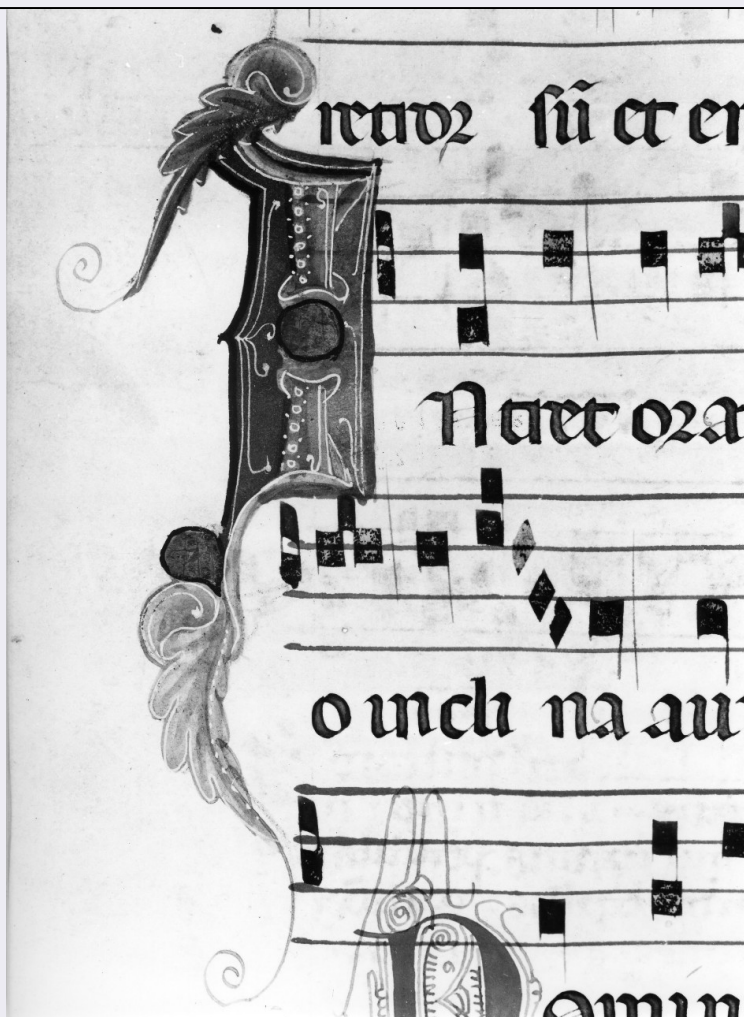 retror sū et er
I Ntret ora
o incli na au
Domin